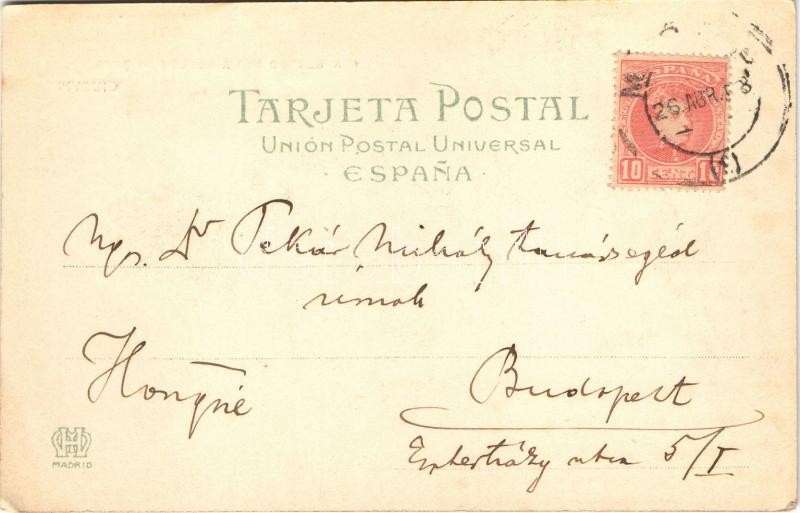 TARJETA POSTAL
UNIÓN POSTAL UNIVERSAL
· ESPAÑA ·
ESPAÑA
26.ABR.
10 CENT 10
Ngs. Dr Pekár Mihály tanársegéd
úrnak
Hongrie
Budapest
Eszterházy utca 5/I
MADRID